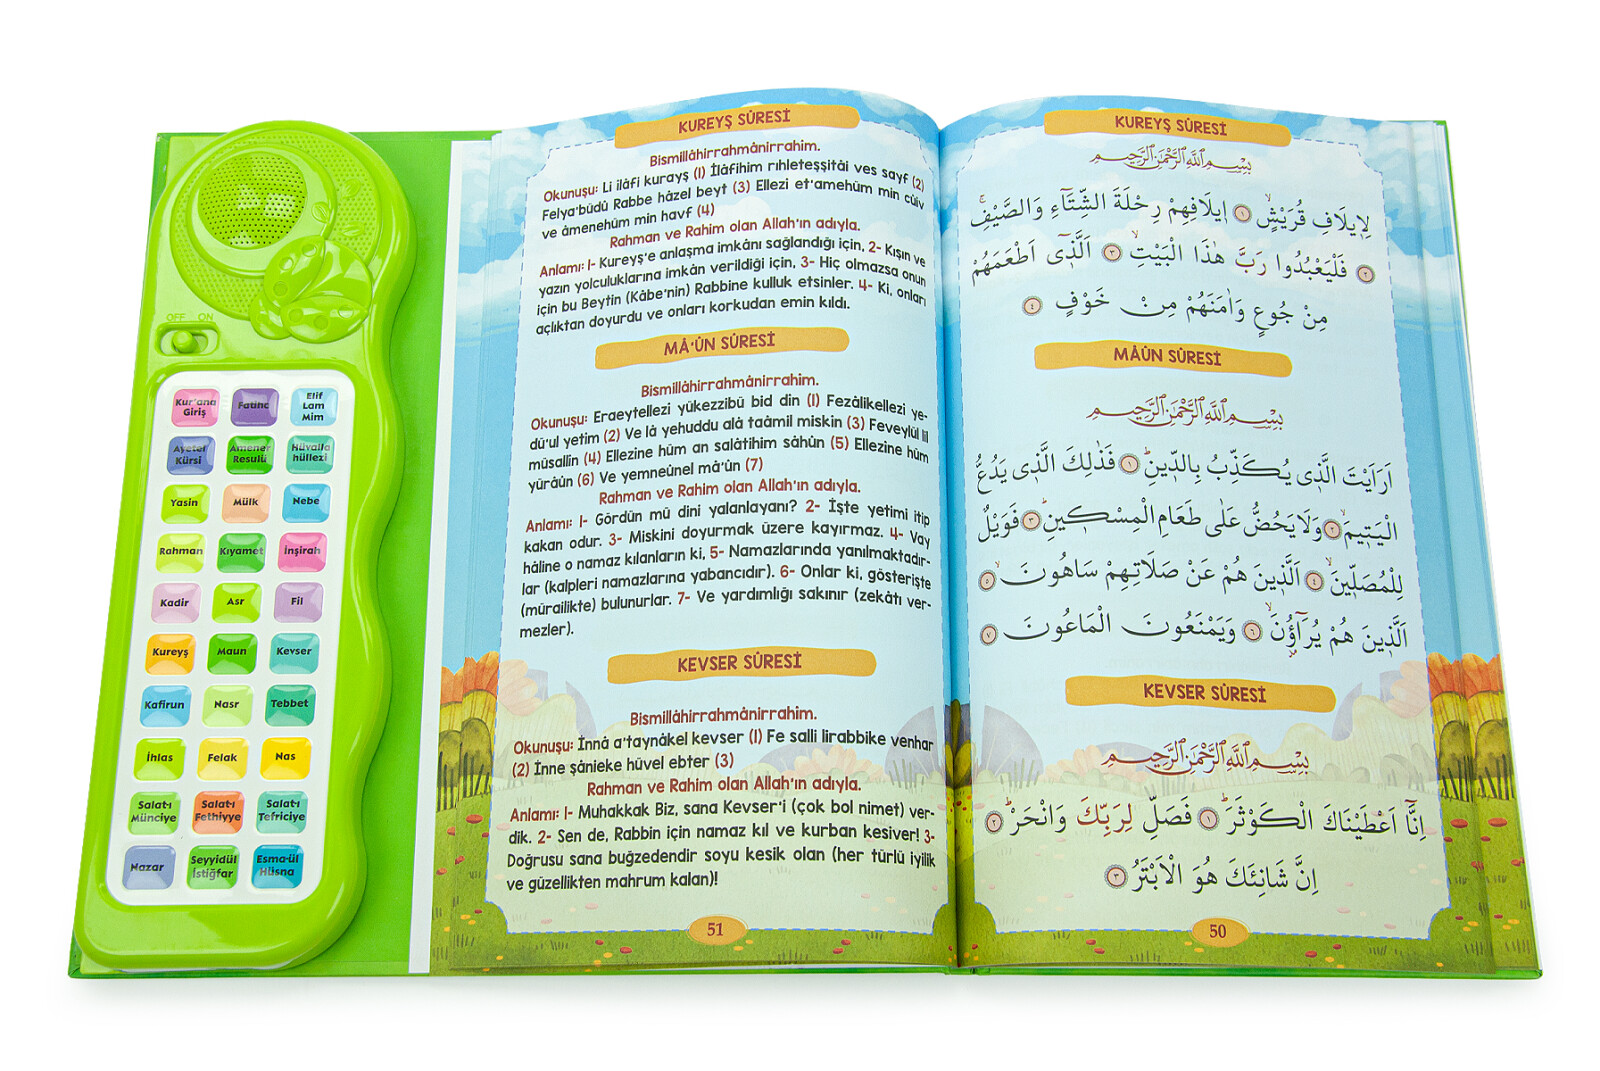 OFF ON
Kur'ana Giriş
Fatiha
Elif Lam Mim
Ayetel Kürsi
Amener Resulü
Hüvalla hüllezi
Yasin
Mülk
Nebe
Rahman
Kıyamet
İnşirah
Kadir
Asr
Fil
Kureyş
Maun
Kevser
Kafirun
Nasr
Tebbet
İhlas
Felak
Nas
Salat-ı Münciye
Salat-ı Fethiyye
Salat-ı Tefriciye
Nazar
Seyyidül İstiğfar
Esma-ül Hüsna
KUREYŞ SÛRESİ
Bismillâhirrahmânirrahim.
Okunuşu: Li ilâfi kurayş (1) İlâfihim rıhleteşşitâi ves sayf (2)
Felya'büdû Rabbe hâzel beyt (3) Ellezi et'amehüm min cûiv
ve âmenehüm min havf (4)
Rahman ve Rahim olan Allah'ın adıyla.
Anlamı: 1- Kureyş'e anlaşma imkânı sağlandığı için, 2- Kışın ve
yazın yolculuklarına imkân verildiği için, 3- Hiç olmazsa onun
için bu Beytin (Kâbe'nin) Rabbine kulluk etsinler. 4- Ki, onları
açlıktan doyurdu ve onları korkudan emin kıldı.
MÂ'ÛN SÛRESİ
Bismillâhirrahmânirrahim.
Okunuşu: Eraeytellezi yükezzibü bid din (1) Fezâlikellezi ye-
dü'ul yetim (2) Ve lâ yehuddu alâ taâmil miskin (3) Feveylül lil
müsallin (4) Ellezine hüm an salâtihim sâhûn (5) Ellezine hüm
yürâûn (6) Ve yemneûnel mâ'ûn (7)
Rahman ve Rahim olan Allah'ın adıyla.
Anlamı: 1- Gördün mü dini yalanlayanı? 2- İşte yetimi itip
kakan odur. 3- Miskini doyurmak üzere kayırmaz. 4- Vay
hâline o namaz kılanların ki, 5- Namazlarında yanılmaktadır-
lar (kalpleri namazlarına yabancıdır). 6- Onlar ki, gösterişte
(mürailikte) bulunurlar. 7- Ve yardımlığı sakınır (zekâtı ver-
mezler).
KEVSER SÛRESİ
Bismillâhirrahmânirrahim.
Okunuşu: İnnâ a'taynâkel kevser (1) Fe salli lirabbike venhar
(2) İnne şânieke hüvel ebter (3)
Rahman ve Rahim olan Allah'ın adıyla.
Anlamı: 1- Muhakkak Biz, sana Kevser'i (çok bol nimet) ver-
dik. 2- Sen de, Rabbin için namaz kıl ve kurban kesiver! 3-
Doğrusu sana buğzedendir soyu kesik olan (her türlü iyilik
ve güzellikten mahrum kalan)!
51
KUREYŞ SÛRESİ
بِسْمِ اللّٰهِ الرَّحْمٰنِ الرَّحِيمِ
لِاٖيلَافِ قُرَيْشٍۙ ١ اٖيلَافِهِمْ رِحْلَةَ الشِّتَٓاءِ وَالصَّيْفِۚ
٢ فَلْيَعْبُدُوا رَبَّ هٰذَا الْبَيْتِۙ ٣ اَلَّذٖٓى اَطْعَمَهُمْ
مِنْ جُوعٍ وَاٰمَنَهُمْ مِنْ خَوْفٍ ٤
MÂÛN SÛRESİ
بِسْمِ اللّٰهِ الرَّحْمٰنِ الرَّحِيمِ
اَرَاَيْتَ الَّذٖى يُكَذِّبُ بِالدّٖينِؕ ١ فَذٰلِكَ الَّذٖى يَدُعُّ
الْيَتٖيمَۙ ٢ وَلَا يَحُضُّ عَلٰى طَعَامِ الْمِسْكٖينِؕ ٣ فَوَيْلٌ
لِلْمُصَلّٖينَۙ ٤ اَلَّذٖينَ هُمْ عَنْ صَلَاتِهِمْ سَاهُونَۙ ٥
اَلَّذٖينَ هُمْ يُرَٓاؤُ۫نَۙ ٦ وَيَمْنَعُونَ الْمَاعُونَ ٧
KEVSER SÛRESİ
بِسْمِ اللّٰهِ الرَّحْمٰنِ الرَّحِيمِ
اِنَّٓا اَعْطَيْنَاكَ الْكَوْثَرَؕ ١ فَصَلِّ لِرَبِّكَ وَانْحَرْؕ ٢
اِنَّ شَانِئَكَ هُوَ الْاَبْتَرُ ٣
50